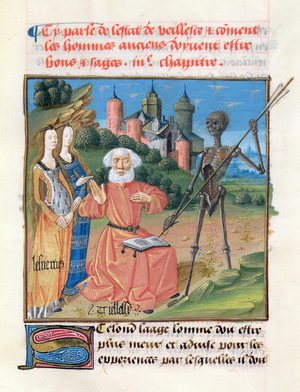 Cy parle de lestat de veillesse et coment
les hommes anciens doivent estre
bons et sages. iiie chapitre.
Vieillesse
Selond laage homme doit estre
plus meur et advise pour les
experiences par lesquelles il doit